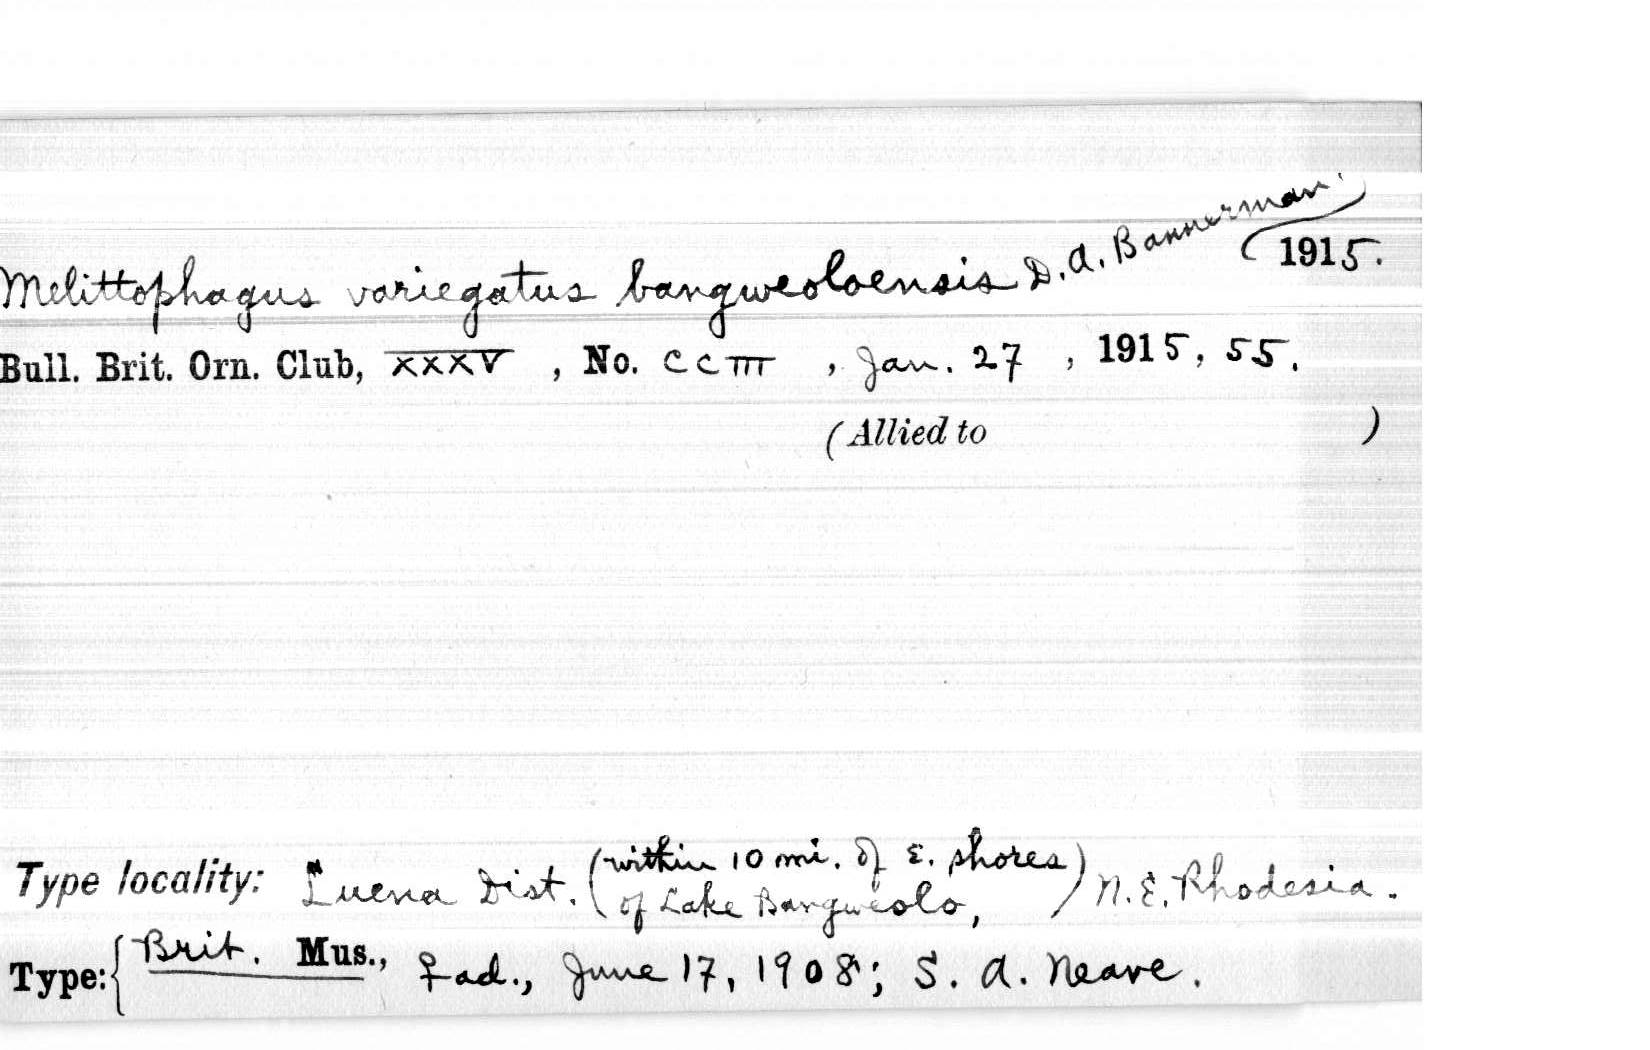 Melittophagus variegatus bangweoloensis D. A. Bannerman.
1915.
Bull. Brit. Orn. Club, XXXV , No. CCIII , Jan. 27 , 1915, 55.
(Allied to )
Type locality: Luena Dist. (within 10 mi. of E. shores
of Lake Bangweolo, ) N. E. Rhodesia.
Type: { Brit. Mus., ♀ ad., June 17, 1908; S. A. Neave.